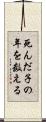 死んだ子の
年を数える